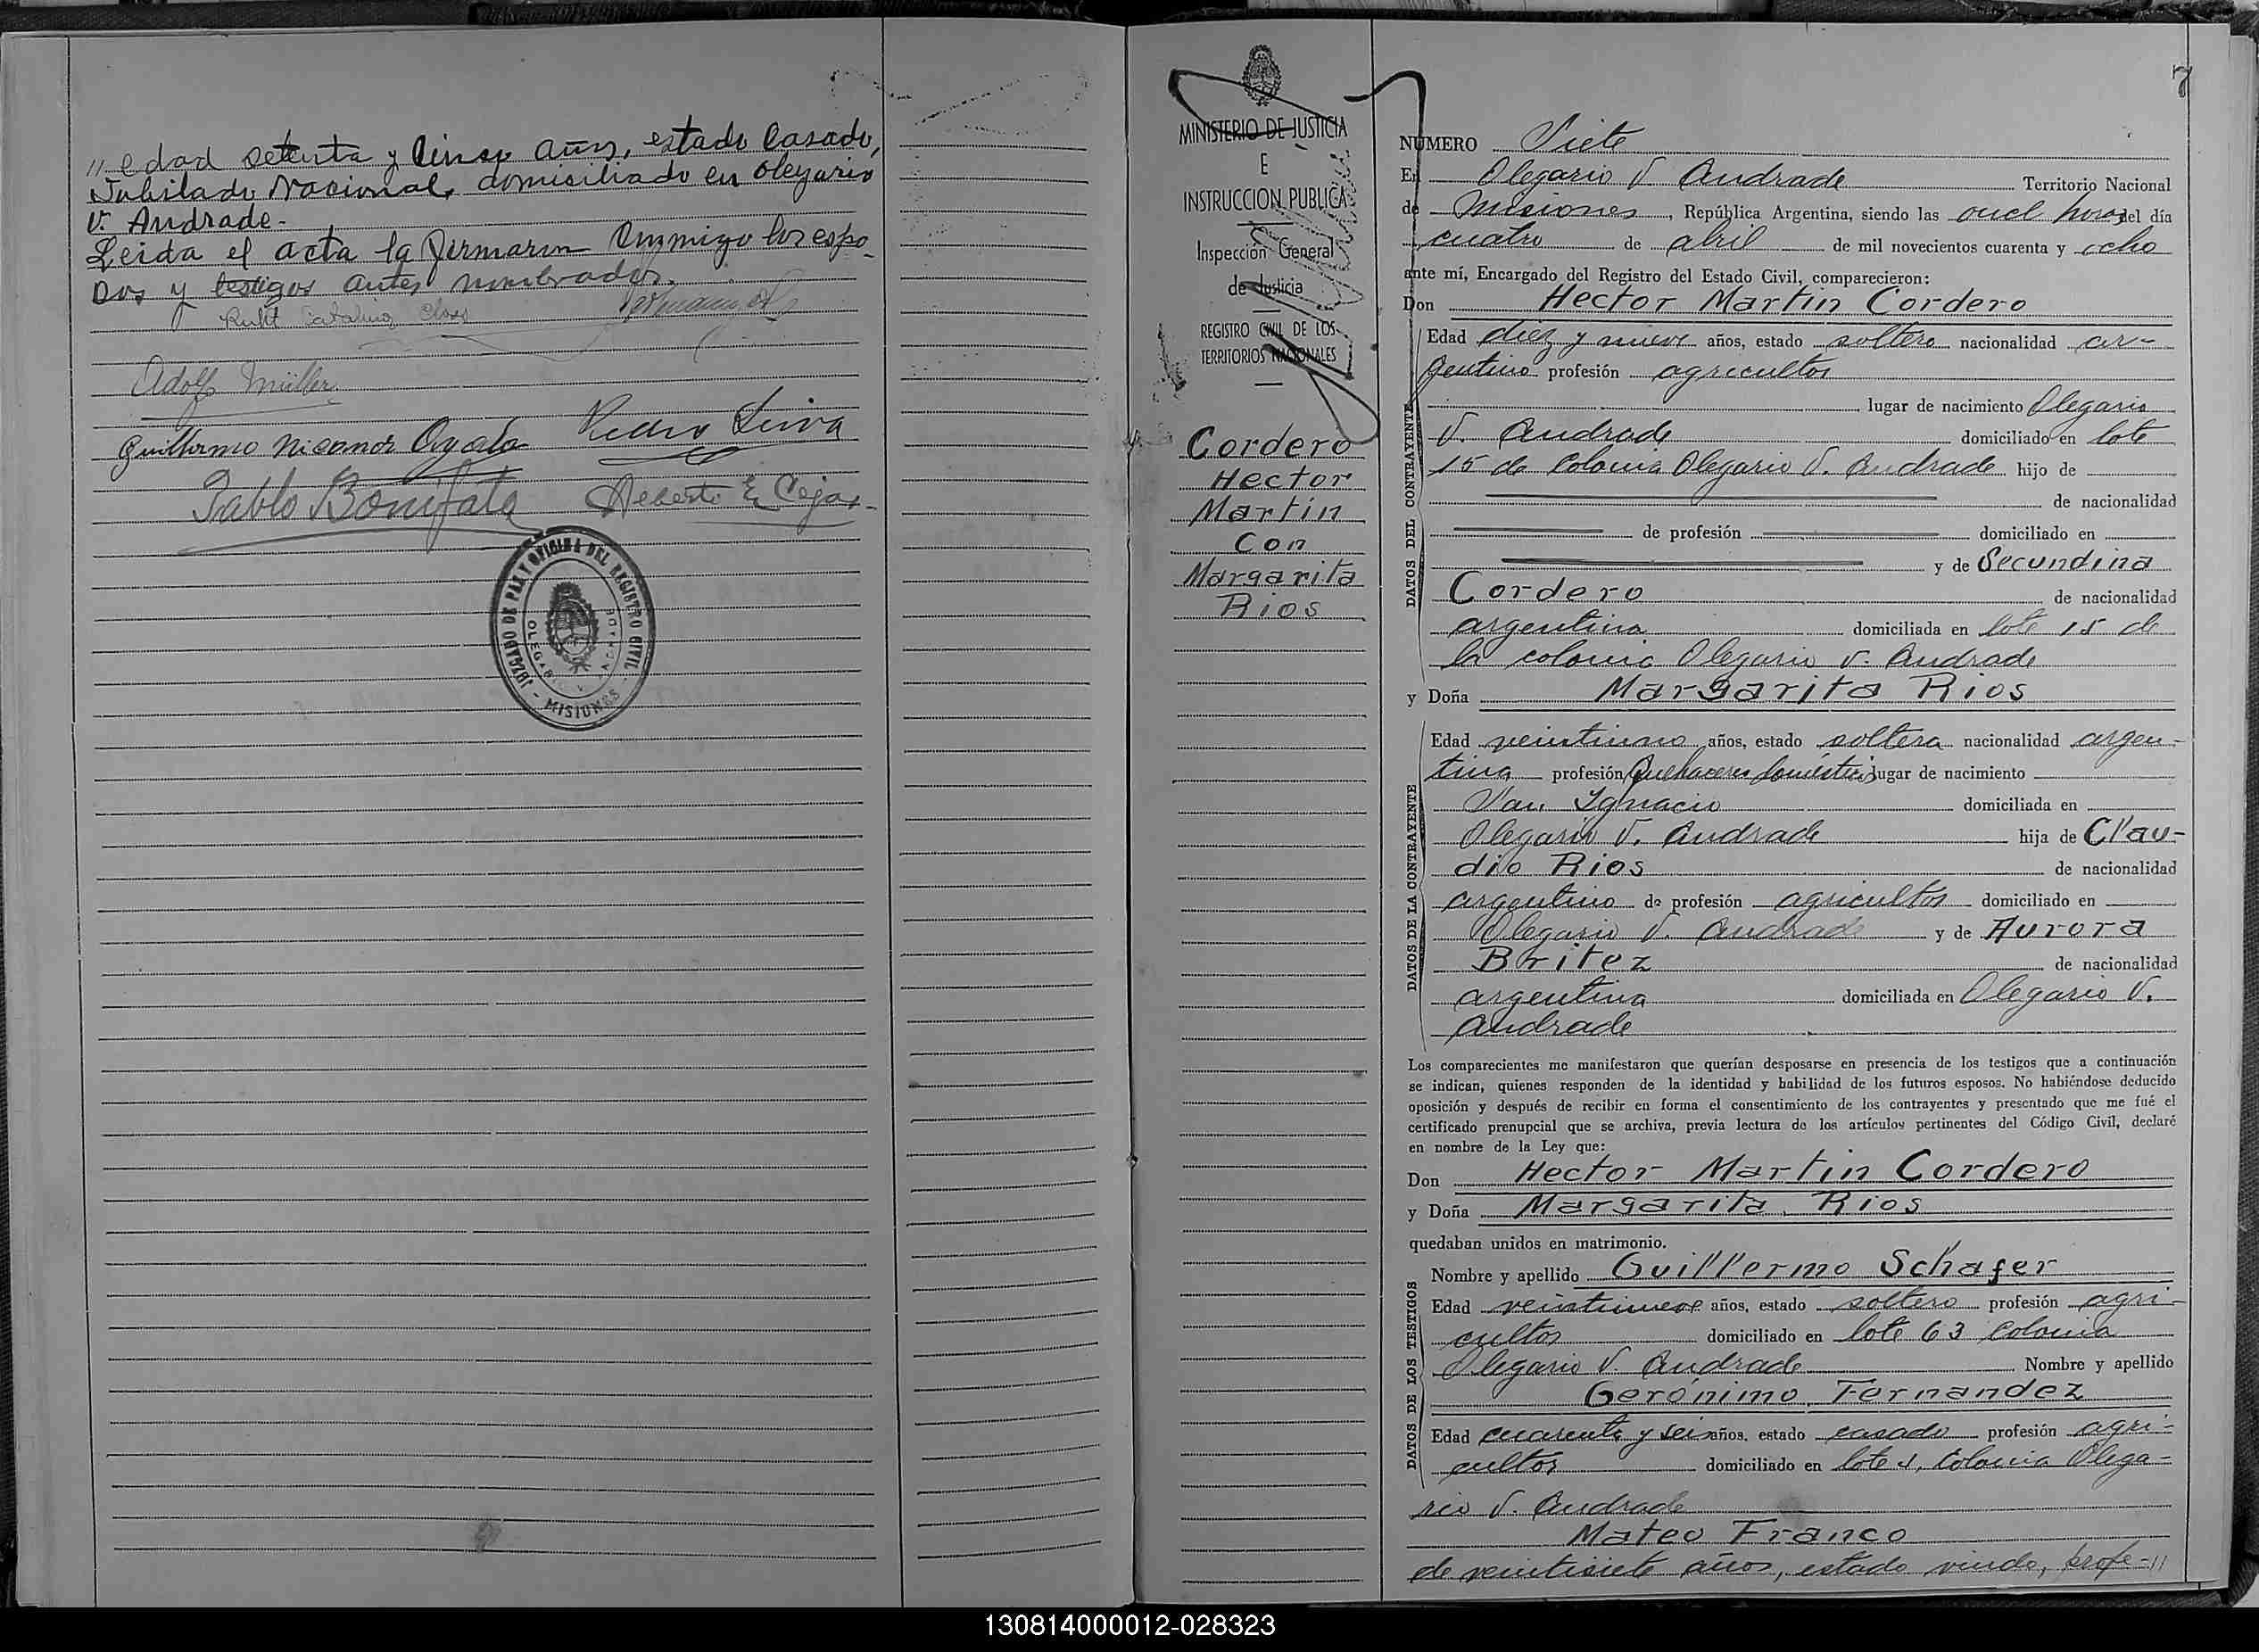 " edad setenta y cinco años, estado Casado,
Jubilado Nacional, domiciliado en Olegario
V. Andrade.-
Leida el acta la firmaron conmigo los espo-
sos y testigos antes nombrados.
Adolfo Müller
Guillermo Nicanor Ayala Pedro Leiva
Pablo Bonifato Alberto E. Cejas
JUZGADO DE PAZ Y OFICINA DEL REGISTRO CIVIL
OLEGARIO V. ANDRADE
- MISIONES -
MINISTERIO DE JUSTICIA
E
INSTRUCCION PUBLICA
Inspección General
de Justicia
REGISTRO CIVIL DE LOS
TERRITORIOS NACIONALES
Cordero
Hector
Martin
Con
Margarita
Rios
7
NÚMERO Siete
En Olegario V. Andrade Territorio Nacional
de Misiones, República Argentina, siendo las once horas del día
cuatro de abril de mil novecientos cuarenta y ocho
ante mí, Encargado del Registro del Estado Civil, comparecieron:
Don Hector Martin Cordero
DATOS DEL CONTRAYENTE
Edad diez y nueve años, estado soltero nacionalidad ar-
gentino profesión agricultor
lugar de nacimiento Olegario
V. Andrade domiciliado en lote
15 de Colonia Olegario V. Andrade hijo de
de nacionalidad
de profesión domiciliado en
y de Secundina
Cordero de nacionalidad
argentina domiciliada en lote 15 de
la colonia Olegario V. Andrade
y Doña Margarita Rios
DATOS DE LA CONTRAYENTE
Edad veintiuno años, estado soltera nacionalidad argen-
tina profesión Quehaceres domésticos lugar de nacimiento
San Ignacio domiciliada en
Olegario V. Andrade hija de Clau-
dio Rios de nacionalidad
argentino de profesión agricultor domiciliado en
Olegario V. Andrade y de Aurora
Britez de nacionalidad
argentina domiciliada en Olegario V.
Andrade
Los comparecientes me manifestaron que querían desposarse en presencia de los testigos que a continuación
se indican, quienes responden de la identidad y habilidad de los futuros esposos. No habiéndose deducido
oposición y después de recibir en forma el consentimiento de los contrayentes y presentado que me fué el
certificado prenupcial que se archiva, previa lectura de los artículos pertinentes del Código Civil, declaré
en nombre de la Ley que:
Don Hector Martin Cordero
y Doña Margarita Rios
quedaban unidos en matrimonio.
DATOS DE LOS TESTIGOS
Nombre y apellido Guillermo Schafer
Edad veintinueve años, estado soltero profesión agri-
cultor domiciliado en lote 63 Colonia
Olegario V. Andrade Nombre y apellido
Gerónimo Fernandez
Edad cuarenta y seis años, estado casado profesión agri-
cultor domiciliado en lote Colonia Olega-
rio V. Andrade
Mateo Franco
de veintisiete años, estado viudo, profe-"
130814000012-028323